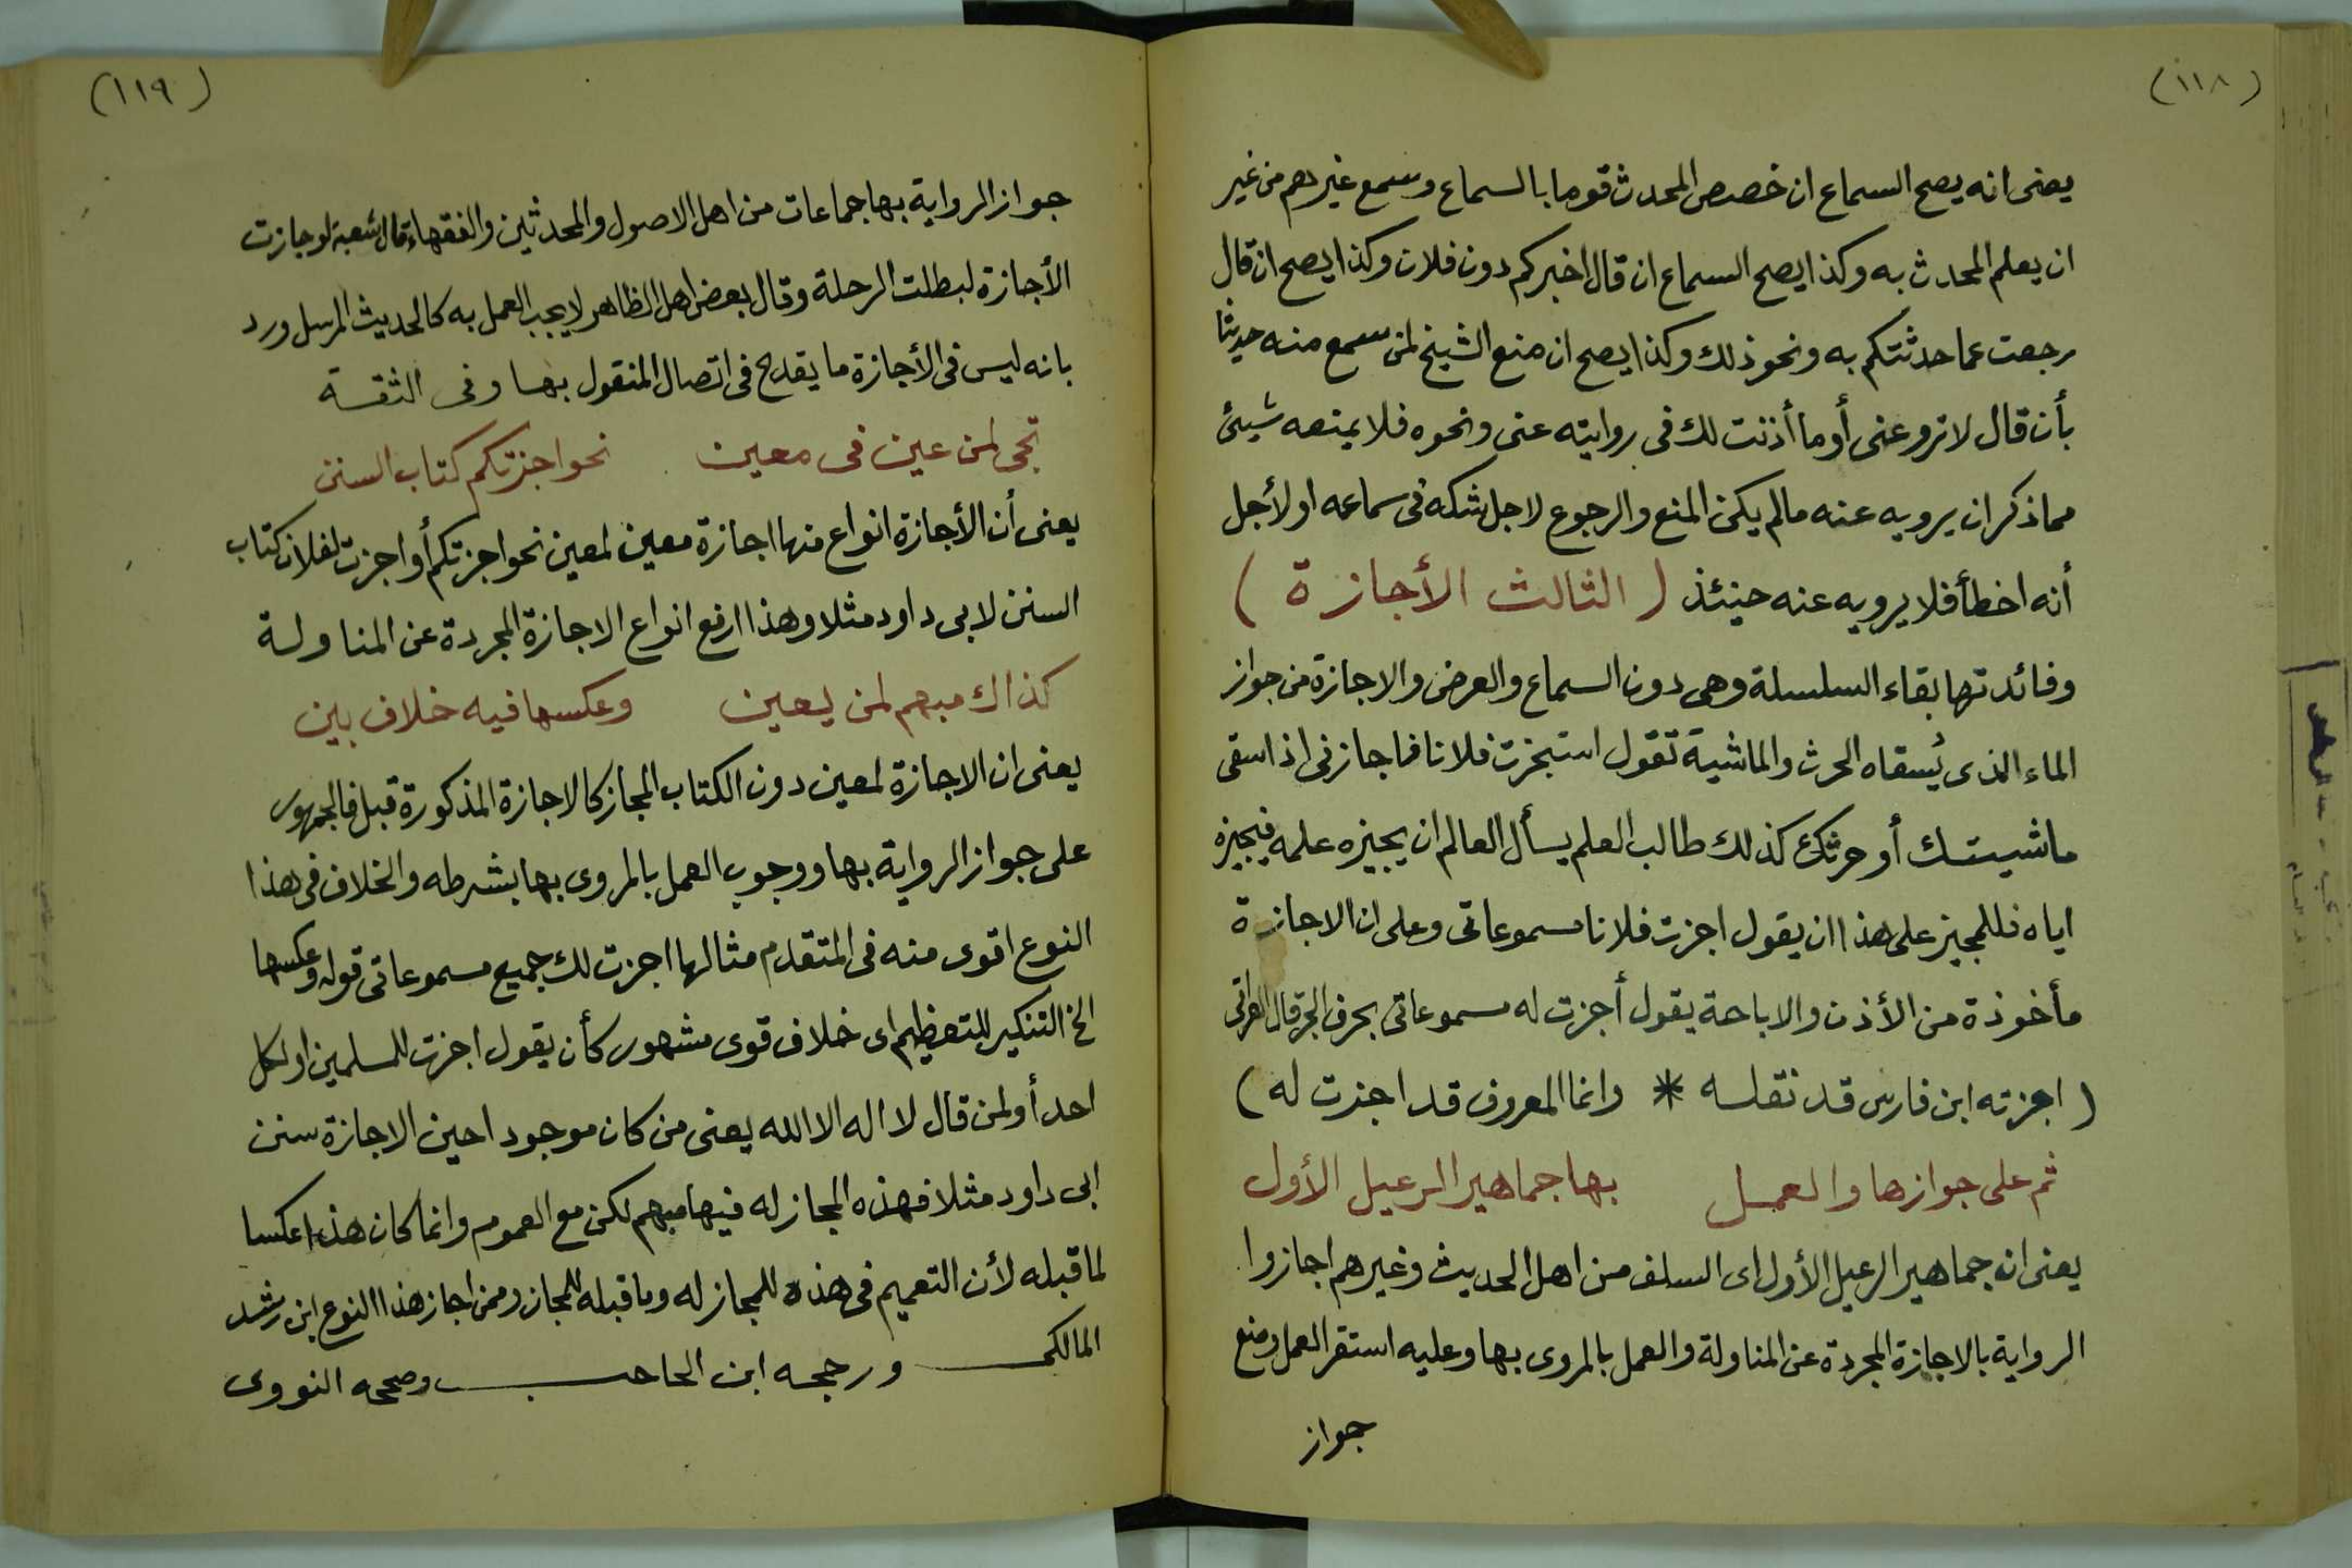 (١١٨)
يعنى انه يصح السماع ان خصص المحدث قوما بالسماع وسمع غيرهم من غير
ان يعلم المحدث به وكذا يصح السماع ان قال اخبركم دون فلان وكذا يصح ان قال
رجعت عما حدثتكم به ونحو ذلك وكذا يصح ان منع الشيخ لمن سمع منه حديثا
بأن قال لا ترو عنى أو ما أذنت لك فى روايته عنى ونحوه فلا يمنعه شيئ
مما ذكر ان يرويه عنه مالم يكن المنع والرجوع لاجل شكه فى سماعه او لأجل
أنه اخطأ فلا يرويه عنه حينئذ ( الثالث الأجازة )
وفائدتها بقاء السلسلة وهى دون السماع والعرض والاجازة من جواز
الماء الذى يُسقاه الحرث والماشية تقول استجزت فلانا فاجازنى اذا سقى
ماشيتك أو حرثك كذلك طالب العلم يسأل العالم ان يجيزه علمه فيجيزه
اياه فللمجيز على هذا ان يقول اجزت فلانا مسموعاتى وعلى ان الاجازة
مأخوذة من الأذن والاباحة يقول أجزت له مسموعاتى بحرف الجر قال العراقى
( اجزته ابن فارس قد نقله * وانما المعروف قد اجزت له )
ثم على جوازها والعمل بها جماهير الرعيل الأول
يعنى ان جماهير الرعيل الأول اى السلف من اهل الحديث وغيرهم اجازوا
الرواية بالاجازة المجردة عن المناولة والعمل بالمروى بها وعليه استقر العمل ومنع
جواز
(١١٩)
جواز الرواية بها جماعات من اهل الاصول والمحدثين والفقهاء قال شعبة لو جازت
الأجازة لبطلت الرحلة وقال بعض اهل الظاهر لا يجب العمل به كالحديث المرسل ورد
بانه ليس فى الأجازة ما يقدح فى اتصال المنقول بها وفى الثقة
تجى لمن عين فى معين نحو اجزتكم كتاب السنن
يعنى أن الأجازة انواع منها اجازة معين لمعين نحو اجزتكم أو اجزت لفلان كتاب
السنن لابى داود مثلا وهذا ارفع انواع الاجازة المجردة عن المناولة
كذاك مبهم لمن يعين وعكسها فيه خلاف بين
يعنى ان الاجازة لمعين دون الكتاب المجاز كالاجازة المذكورة قبل فالجمهور
على جواز الرواية بها ووجوب العمل بالمروى بها بشرطه والخلاف فى هذا
النوع اقوى منه فى المتقدم مثالها اجزت لك جميع مسموعاتى قوله وعكسها
الخ التنكير للتعظيم اى خلاف قوى مشهور كأن يقول اجزت للمسلمين او لكل
احد أو لمن قال لا اله الا الله يعنى من كان موجودا حين الاجازة سنن
ابى داود مثلا فهذه المجاز له فيها مبهم لكن مع العموم وانما كان هذا عكسا
لما قبله لأن التعميم فى هذه للمجاز له وما قبله للمجاز وممن اجاز هذا النوع ابن رشد
المالكى ورجحه ابن الحاجب وصححه النووى